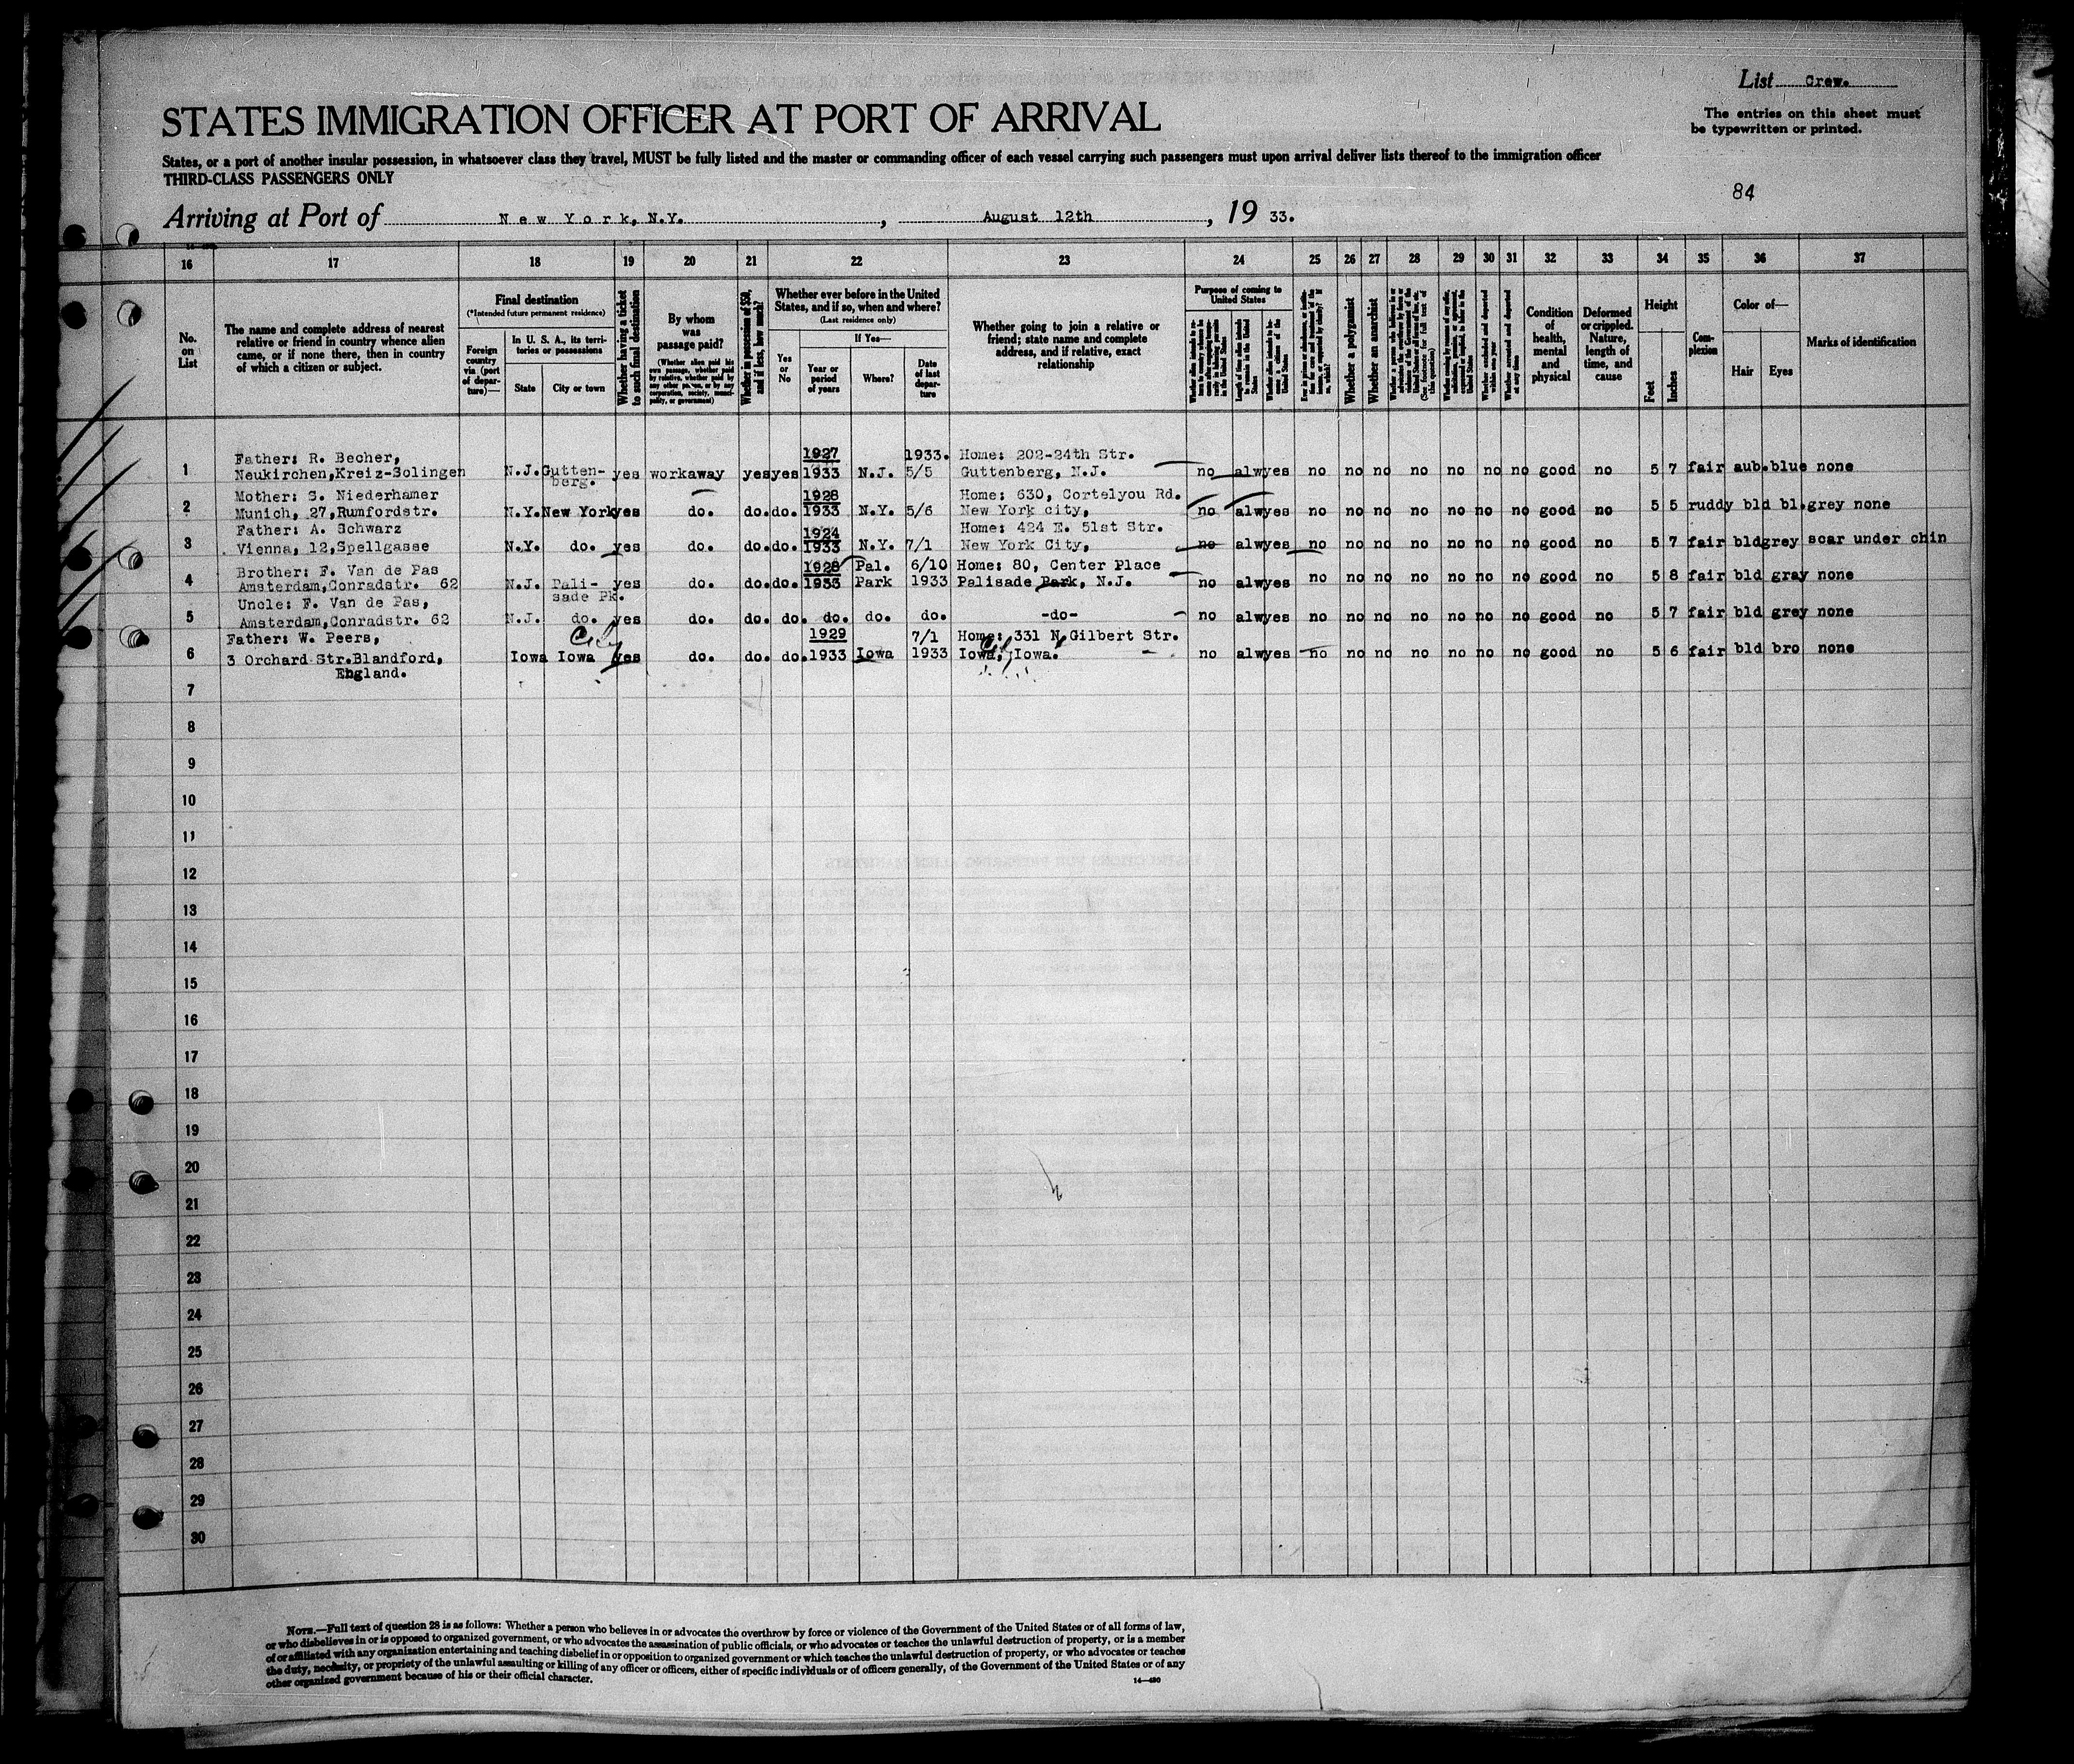 List Crew.
The entries on this sheet must
be typewritten or printed.
STATES IMMIGRATION OFFICER AT PORT OF ARRIVAL
States, or a port of another insular possession, in whatsoever class they travel, MUST be fully listed and the master or commanding officer of each vessel carrying such passengers must upon arrival deliver lists thereof to the immigration officer
THIRD-CLASS PASSENGERS ONLY
84
Arriving at Port of New York, N.Y. , August 12th , 19 33.
16 17 18 19 20 21 22 23 24 25 26 27 28 29 30 31 32 33 34 35 36 37
No. on List
The name and complete address of nearest relative or friend in country whence alien came, or if none there, then in country of which a citizen or subject.
Final destination
(*Intended future permanent residence)
Foreign country via (port of departure)—
In U. S. A., its territories or possessions
State
City or town
Whether having a ticket to such final destination
By whom was passage paid?
(Whether alien paid his own passage, whether paid by relative, whether paid by any other person, or by any corporation, society, municipality, or government)
Whether in possession of $50, and if less, how much?
Whether ever before in the United States, and if so, when and where?
(Last residence only)
Yes or No
If Yes—
Year or period of years
Where?
Date of last departure
Whether going to join a relative or friend; state name and complete address, and if relative, exact relationship
Purpose of coming to United States
Length of time alien intends to remain in the United States
Whether a polygamist
Whether an anarchist
Whether arrested and deported at any time
Condition of health, mental and physical
Deformed or crippled. Nature, length of time, and cause
Height
Feet
Inches
Complexion
Color of—
Hair
Eyes
Marks of identification
Father: R. Becher, 1927 1933. Home: 202-24th Str.
1 Neukirchen,Kreiz-Solingen N.J. Gutten- yes workaway yes yes 1933 N.J. 5/5 Guttenberg, N.J. no alw yes no no no no no no no good no 5 7 fair aub. blue none
berg.
Mother: S. Niederhamer 1928 Home: 630, Cortelyou Rd.
2 Munich, 27,Rumfordstr. N.Y. New York yes do. do. do. 1933 N.Y. 5/6 New York city, no alw yes no no no no no no no good no 5 5 ruddy bld bl.grey none
Father: A. Schwarz 1924 Home: 424 E. 51st Str.
3 Vienna, 12,Spellgasse N.Y. do. yes do. do. do. 1933 N.Y. 7/1 New York City, no alw yes no no no no no no no good no 5 7 fair bld grey scar under chin
Brother: F. Van de Pas 1928 Pal. 6/10 Home: 80, Center Place
4 Amsterdam,Conradstr. 62 N.J. Pali- yes do. do. do. 1933 Park 1933 Palisade Park, N.J. no alw yes no no no no no no no good no 5 8 fair bld gray none
sade Pk.
Uncle: F. Van de Pas,
5 Amsterdam,Conradstr. 62 N.J. do. yes do. do. do. do. do. do. -do- no alw yes no no no no no no no good no 5 7 fair bld grey none
Father: W. Peers, City 1929 7/1 Home: 331 N Gilbert Str.
6 3 Orchard Str.Blandford, Iowa Iowa yes do. do. do. 1933 Iowa 1933 Iowa, Iowa. no alw yes no no no no no no no good no 5 6 fair bld bro none
England.
7
8
9
10
11
12
13
14
15
16
17
18
19
20
21
22
23
24
25
26
27
28
29
30
NOTE.—Full text of question 28 is as follows: Whether a person who believes in or advocates the overthrow by force or violence of the Government of the United States or of all forms of law,
or who disbelieves in or is opposed to organized government, or who advocates the assassination of public officials, or who advocates or teaches the unlawful destruction of property, or is a member
of or affiliated with any organization entertaining and teaching disbelief in or opposition to organized government or which teaches the unlawful destruction of property, or who advocates or teaches
the duty, necessity, or propriety of the unlawful assaulting or killing of any officer or officers, either of specific individuals or of officers generally, of the Government of the United States or of any
other organized government because of his or their official character.
14—480